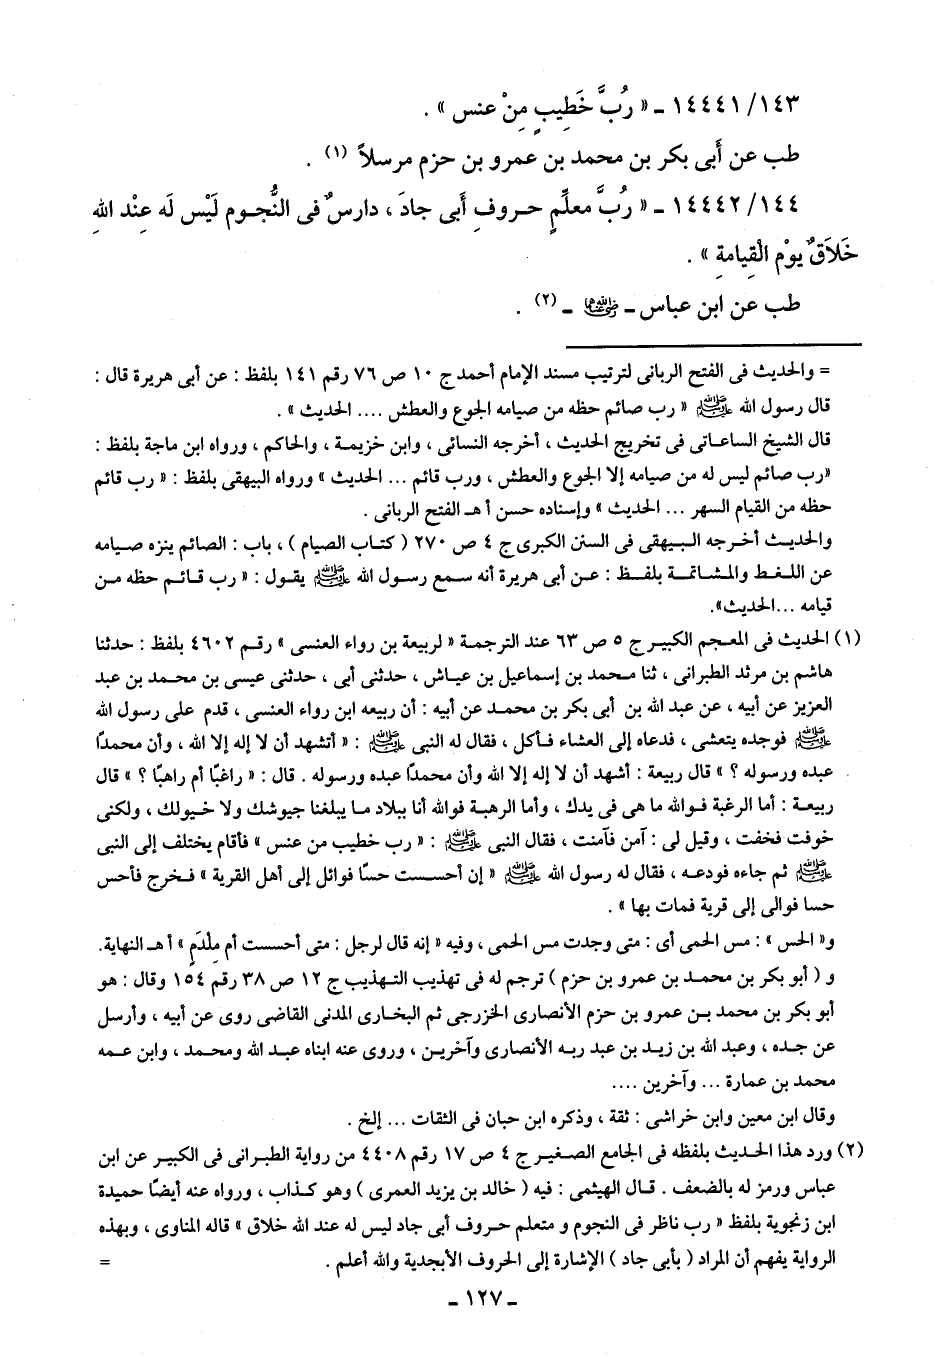 ١٤٤٤١/١٤٣ - « رُبَّ خَطِيبٍ مِنْ عنس » .
طب عن أَبى بكر بن محمد بن عمرو بن حزم مرسلاً (١) .
١٤٤٤٢/١٤٤ - « رُبَّ معلِّمٍ حروفِ أَبى جادَ ، دارسٌ فى النُّجوم لَيْس لَه عِنْد اللهِ
خَلَاقٌ يوْم الْقِيامةِ » .
طب عن ابن عباس - رضي الله عنهما - (٢) .
= والحديث فى الفتح الربانى لترتيب مسند الإمام أحمد ج ١٠ ص ٧٦ رقم ١٤١ بلفظ : عن أبى هريرة قال :
قال رسول الله ﷺ « رب صائم حظه من صيامه الجوع والعطش .... الحديث » .
قال الشيخ الساعاتى فى تخريج الحديث ، أخرجه النسائى ، وابن خزيمة ، والحاكم ، ورواه ابن ماجة بلفظ :
«رب صائم ليس له من صيامه إلا الجوع والعطش ، ورب قائم ... الحديث » ورواه البيهقى بلفظ : « رب قائم
حظه من القيام السهر ... الحديث » وإسناده حسن أ هـ الفتح الربانى .
والحديث أخرجه البيهقى فى السنن الكبرى ج ٤ ص ٢٧٠ ( كتاب الصيام ) ، باب : الصائم ينزه صيامه
عن اللغط والمشاتمة بلفظ : عن أبى هريرة أنه سمع رسول الله ﷺ يقول : « رب قائم حظه من
قيامه ...الحديث».
(١) الحديث فى المعجم الكبير ج ٥ ص ٦٣ عند الترجمة « لربيعة بن رواء العنسى » رقم ٤٦٠٢ بلفظ : حدثنا
هاشم بن مرثد الطبرانى ، ثنا محمد بن إسماعيل بن عياش ، حدثنى أبى ، حدثنى عيسى بن محمد بن عبد
العزيز عن أبيه ، عن عبد الله بن أبى بكر بن محمد عن أبيه : أن ربيعه ابن رواء العنسى ، قدم على رسول الله
ﷺ فوجده يتعشى ، فدعاه إلى العشاء فأكل ، فقال له النبى ﷺ : « أتشهد أن لا إله إلا الله ، وأن محمدًا
عبده ورسوله ؟ » قال ربيعة : أشهد أن لا إله إلا الله وأن محمدًا عبده ورسوله . قال : « راغبًا أم راهبًا ؟ » قال
ربيعة : أما الرغبة فوالله ما هى فى يدك ، وأما الرهبة فوالله أنا ببلاد ما يبلغنا جيوشك ولا خيولك ، ولكنى
خوفت فخفت ، وقيل لى : آمن فآمنت ، فقال النبى ﷺ : « رب خطيب من عنس » فأقام يختلف إلى النبى
ﷺ ثم جاءه فودعه ، فقال له رسول الله ﷺ « إن أحسست حسًا فوائل إلى أهل القرية » فخرج فأحس
حسا فوالى إلى قرية فمات بها » .
و« الحس » : مس الحمى أى : متى وجدت مس الحمى ، وفيه « إنه قال لرجل : متى أحست أم مِلْدَمٍ » أ هـ النهاية.
و ( أبو بكر بن محمد بن عمرو بن حزم ) ترجم له فى تهذيب التهذيب ج ١٢ ص ٣٨ رقم ١٥٤ وقال : هو
أبو بكر بن محمد بن عمرو بن حزم الأنصارى الخزرجى ثم البخارى المدنى القاضى روى عن أبيه ، وأرسل
عن جده ، وعبد الله بن زيد بن عبد ربه الأنصارى وآخرين ، وروى عنه ابناه عبد الله ومحمد ، وابن عمه
محمد بن عمارة ... وآخرين ....
وقال ابن معين وابن خراشى : ثقة ، وذكره ابن حبان فى الثقات ... إلخ .
(٢) ورد هذا الحديث بلفظه فى الجامع الصغير ج ٤ ص ١٧ رقم ٤٤٠٨ من رواية الطبرانى فى الكبير عن ابن
عباس ورمز له بالضعف . قال الهيثمى : فيه ( خالد بن يزيد العمرى ) وهو كذاب ، ورواه عنه أيضًا حميدة
ابن زنجوية بلفظ « رب ناظر فى النجوم و متعلم حروف أبى جاد ليس له عند الله خلاق » قاله المناوى ، وبهذه
الرواية يفهم أن المراد ( بأبى جاد ) الإشارة إلى الحروف الأبجدية والله أعلم . =
- ١٢٧ -